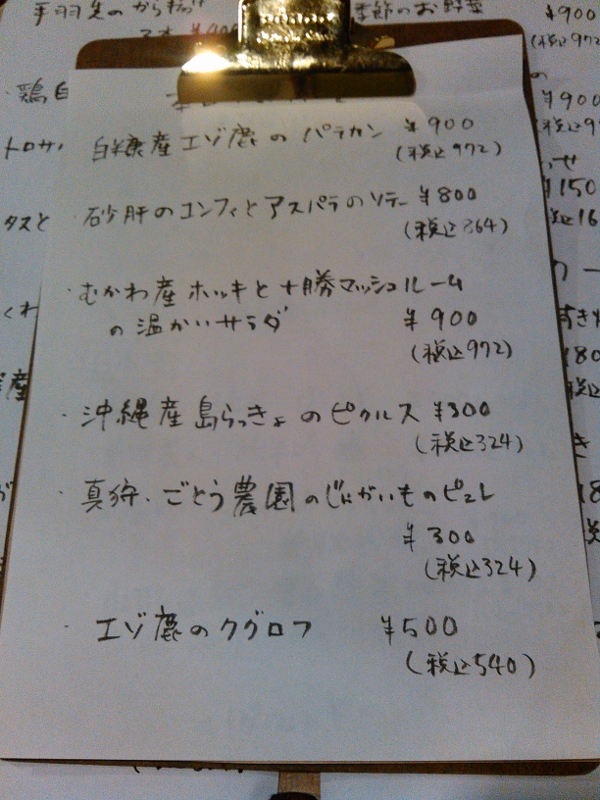 手羽先のから揚げ
季節のお野菜
¥900
(税込972
・鶏
¥900
白糠産エゾ鹿のパテカン ¥900
(税込972)
砂肝のコンフィとアスパラのソテー ¥800
(税込864)
・むかわ産ホッキと十勝マッシュルーム
の温かいサラダ
¥900
(税込972)
・沖縄産島らっきょのピクルス ¥300
(税込324)
・真狩・ごとう農園のじゃがいものピュレ
¥300
(税込324)
・エゾ鹿のクグロフ ¥500
(税込540)